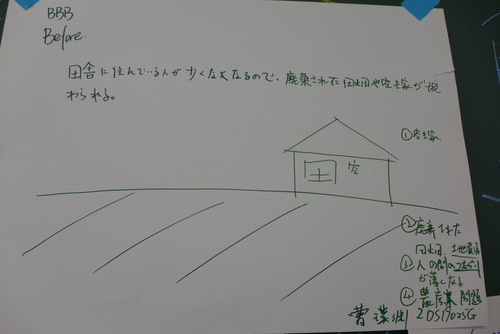 BBB
Before.
田舎に住んでいる人が少くなくなるので、廃棄された田畑や空き家が現
われる。
①空き家
空
②廃棄された
田畑 土地荒廃
③人の間のつながり
が薄くなる
④農産業問題
曹
20S19025G